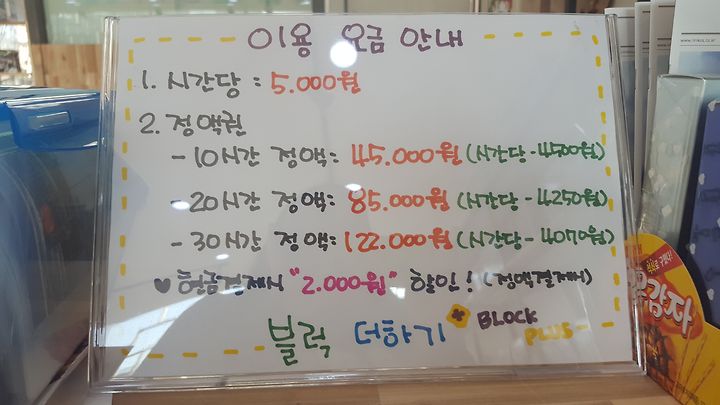 이용 요금 안내
1. 시간당 : 5.000원
2. 정액권
- 10시간 정액: 45.000원 (시간당 - 4500원)
- 20시간 정액: 85.000원 (시간당 - 4250원)
- 30시간 정액: 122.000원 (시간당 - 4070원)
♥ 현금결제시 "2.000원" 할인! (정액결제시)
블럭 더하기 + BLOCK
PLUS
감자